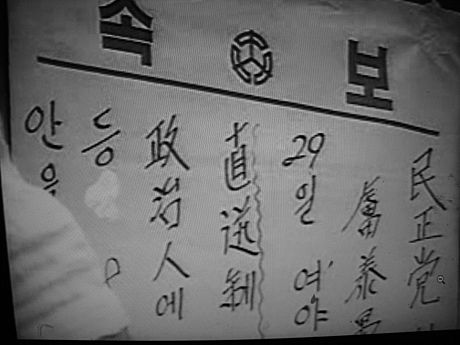 속보
民正党
盧泰愚
29일 여야
直選制
政治人에
등
안을